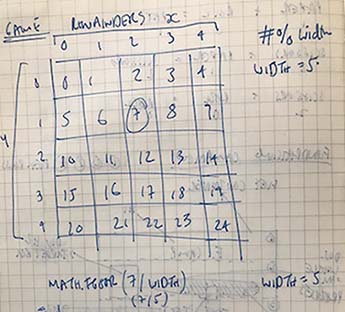 GAME REMAINDERS x
0 1 2 3 4 #% Width
WIDTH = 5
y 0 0 1 2 3 4
1 5 6 7 8 9
2 10 11 12 13 14
3 15 16 17 18 19
4 20 21 22 23 24
MATH.FLOOR (7/WIDTH) WIDTH = 5
(7/5)